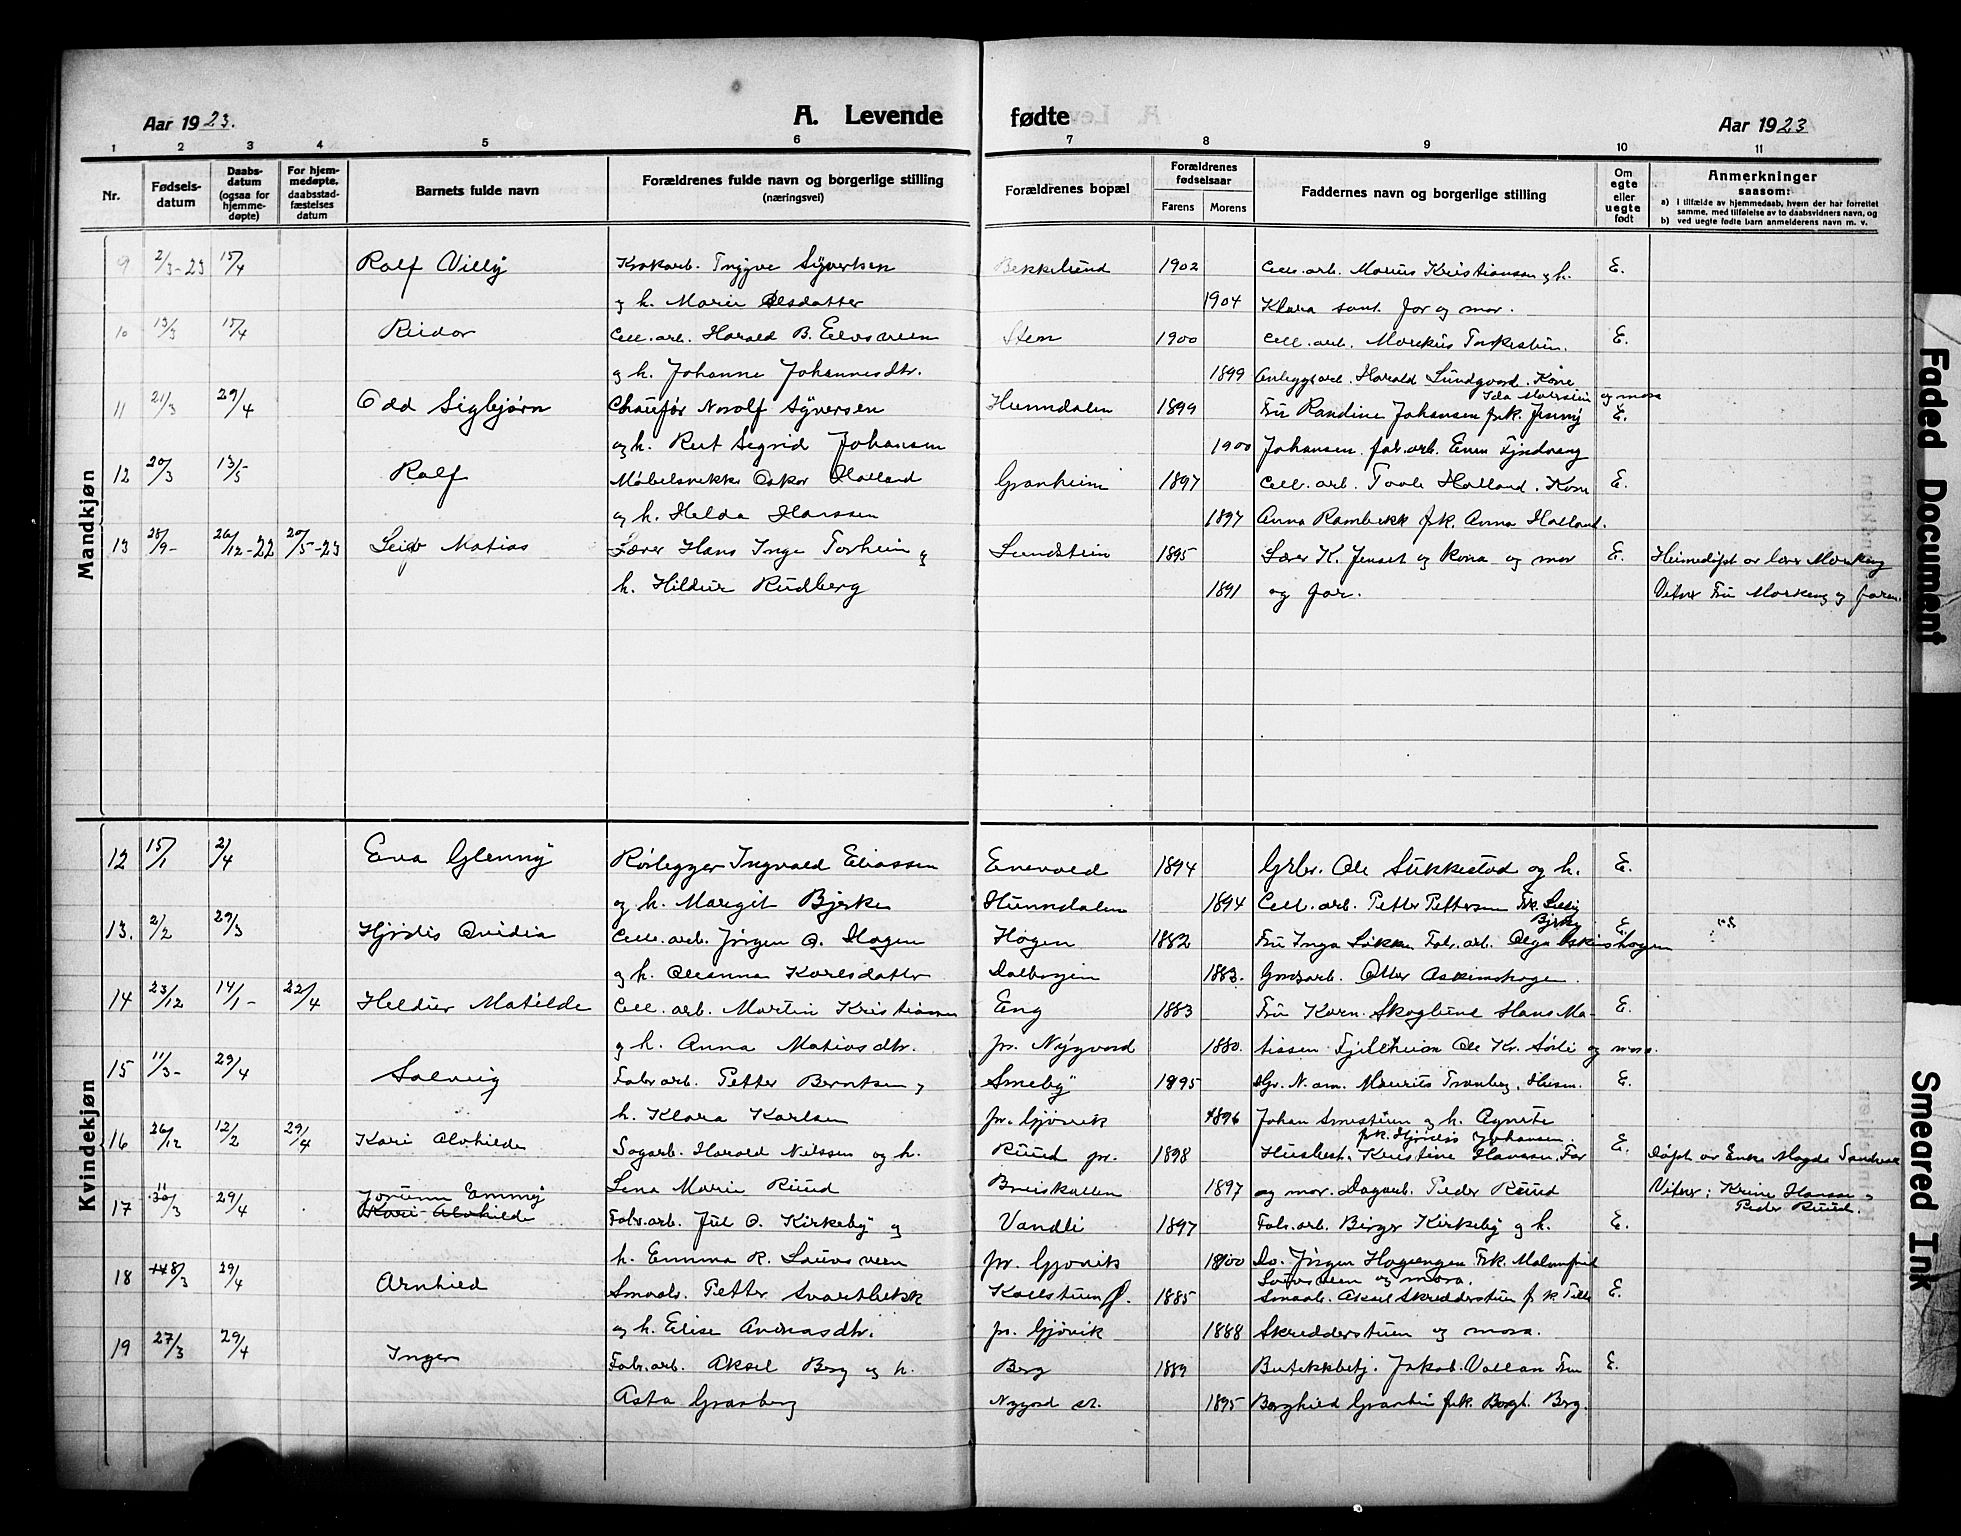 Aar 1923.
A. Levende fødte
Aar 1923
1 2 3 4 5 6 7 8 9 10 11
Nr.
Fødsels-datum
Daabs-datum (ogsaa for hjemme-døpte)
For hjem-medøpte, daabsstad-fæstelses datum
Barnets fulde navn
Forældrenes fulde navn og borgerlige stilling (næringsvei)
Forældrenes bopæl
Forældrenes fødselsaar
Farens Morens
Faddernes navn og borgerlige stilling
Om egte eller uegte født
Anmerkninger saasom:
a) I tilfælde av hjemmedaab, hvem der har forrettet samme, med tilføielse av to daabsvidners navn, og
b) ved uegte fødte barn anmelderens navn m. v.
Mandkjøn
9 2/3-23 15/4 Rolf Villy Trygve Syvertsen Bekkelund 1902 Cell.arb. Marius Kristiansen og h. E.
og h. Marie Olsdatter 1904 Klara samt far og mor.
10 13/3 15/4 Reidar Cell.arb. Harald B. Stem 1900 Cell.arb. E.
og h. Johanne Johannesdtr. 1899 Harald Lundgaard. Kone
11 21/3 29/4 Odd Sigbjørn Chaufør Norolf Syversen Hunndalen 1899 Fru Randine Johansen frk. Jenny E.
og h. Rut Sigrid Johansen 1900 Johansen. fab.arb. Even
12 20/3 13/5 Rolf Oskar Holland Granheim 1897 Cell.arb. Holland. Kone E.
og h. Helda Hanssen 1897 Anna Rambekk frk. Anna Holland.
13 25/9- 26/12-22 20/5-23 Leiv Matias Lærer Hans Inge Torheim og Lundstein 1895 Lærer K. Jenset og kona og mor E. Heimedøpt av lærer Morken
h. Hildur Rudberg 1891 og far. Vitner Fru Morken og faren.
Kvindekjøn
12 15/1 2/4 Eva Glenny Rørlegger Ingvald Eliassen Enevold 1894 Grbr. Ole Sukkestad og h. E.
og h. Margit Bjerke Hunndalen 1894 Cell.arb. Petter Pettersen Frk.
13. 2/2 29/3 Hjørdis Ovidia Cell.arb. Jørgen O. Hagen Hagen 1882 Fru Inga Løkken Fabr.arb. Olga Askimshagen E.
og h. Oleanna Karlsdatter Dalborgen 1883. Otter Askimshagen.
14 23/12 14/1- 22/4 Heldur Matilde Cell.arb. Martin Kristiansen Eng 1883 Fru Karn. Skoglund Hans Ma- E.
og h. Anna Matiasdtr. pr. Nygard 1880. tissen Fjellheim Ole Kr. Sørli og mora.
15 11/3- 29/4 Solveig Fabr.arb. Petter Berntsen og Smeby 1895 Maurits Tranberg, Husm. E.
h. Klara Karlsen pr. Gjøvik 1896 Johan Smestuen og h. Agnete
frk. Hjørdis Johansen.
16 26/12 12/2 29/4 Kari Alvhilde Sagarb. Harald Nilssen og h. Ruud pr. 1898 Husbest. Kristine Hanssen, Far E. Døpt av Enke Magda Sandvik
Lena Marie Ruud Breiskallen 1897 og mor. Dagarb. Peder Ruud Vitner: Krine Hanssen og Peder Ruud.
17 11/3 29/4 Jorunn Emmy Kari Alvhilde Fabr.arb. Jul O. Kirkeby og Vandli 1897 Fabr.arb. Birger Kirkeby og h. E.
h. Emma R. Lauvsveen pr. Gjøvik 1900 Do. Jørgen Hagengen Frk. Malmfrid
Lauvsveen og mora.
18 18/3 29/4 Arnhild Smaabr. Petter Svartbekk Kallstuen Ø. 1885 Smaabr. Aksel Skredderstuen frk. E.
og h. Elise Andreasdtr. pr. Gjøvik 1888 Skredderstuen og mora.
19 27/3 29/4 Inger Fabr.arb. Aksel Berg og h. Berg 1889 Butikkbetj. Jakob Vollan Fru E.
Asta Granberg Nygard st. 1895 Borghild Granlien frk. Borgh. Berg.
Faded Document
Smeared Ink